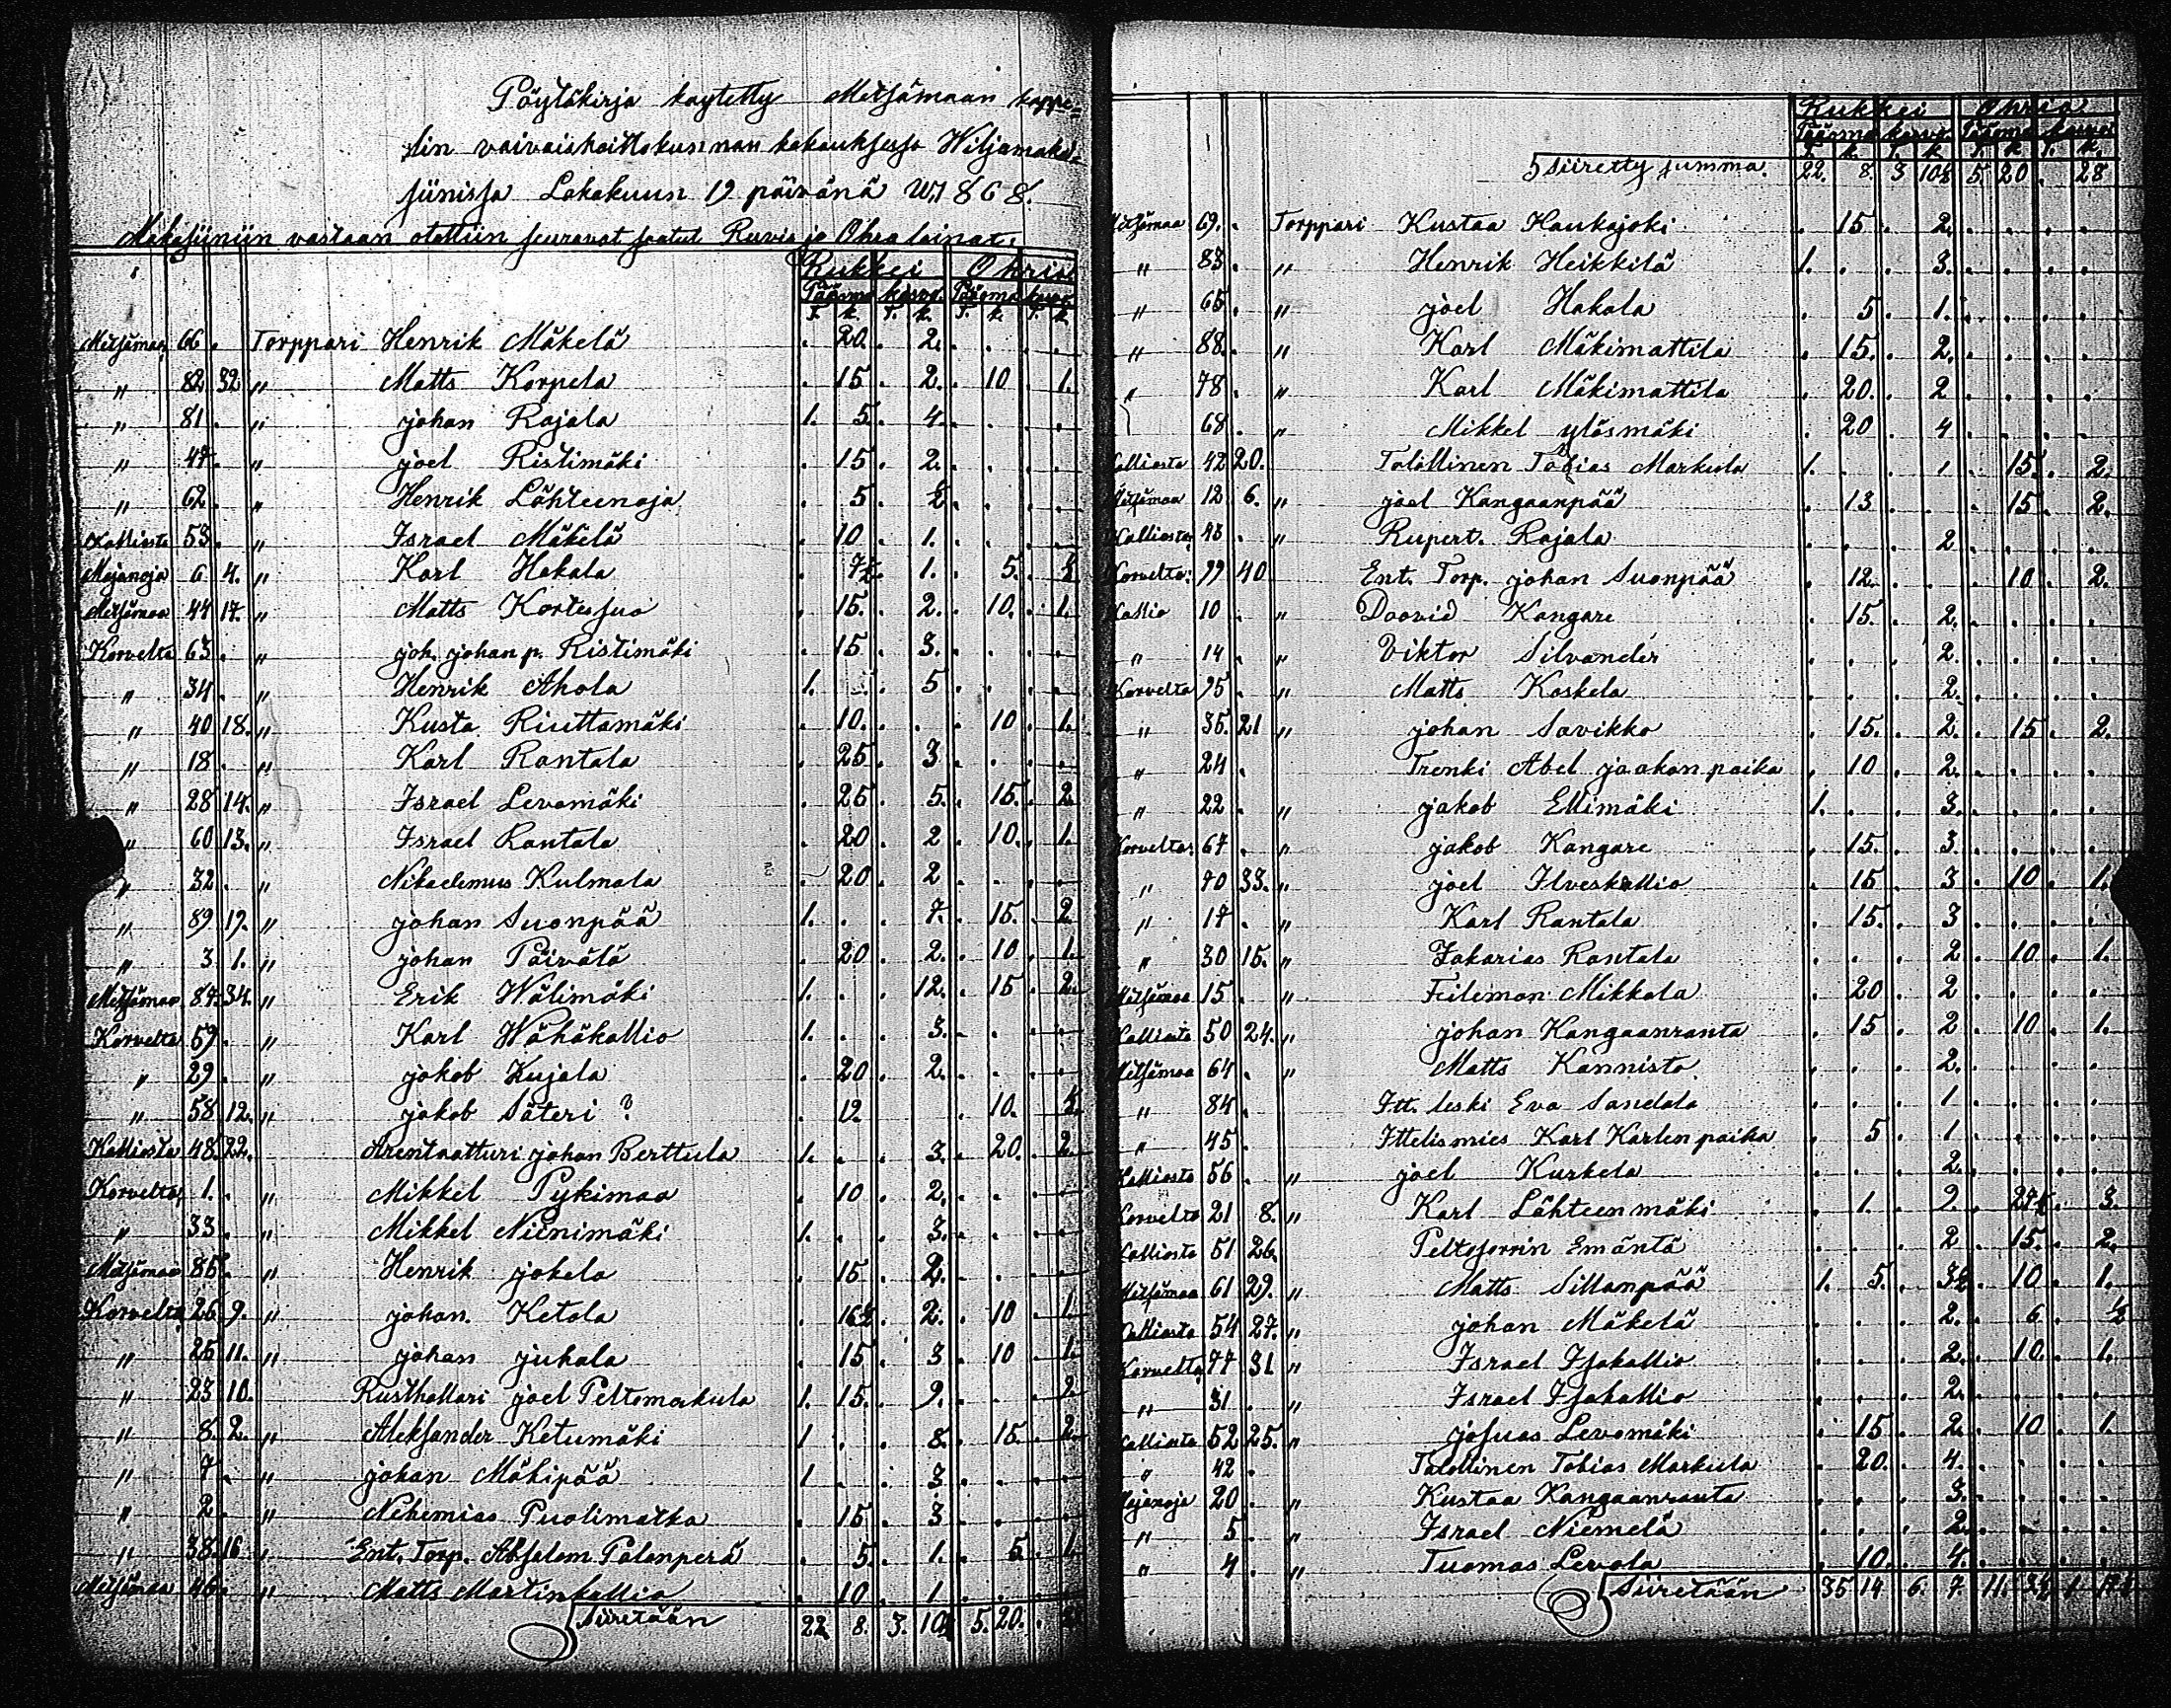 Pöytäkirja kaytetty Metsämaan kappe=
lin vaivaishoittokunnan kokouksessa Wiljamaka=
siinissa Lokakuun 19 päivänä W. 1868.
Makasiiniin vastaan otettiin seuravat saatut Ruvis ja Ohra lainat.
Rukkei Ohria
Pääoma kasvo Pääoma kasvo
T. k. T. k. T. k. T. k.
Metsämaa 66 . Torppari Henrik Mäkelä . 20 . 2 . . . .
" 82 32 " Matts Korpela . 15 . 2 . 10 . 1.
" 81 . " johan Rajala 1. 5 . 4 . . . .
" 47 . " joel Ristimäki . 15 . 2 . . . .
" 62 . " Henrik Lähteenoja . 5 . ½ . . . .
Kalliosta 53 . " Israel Mäkelä . 10 . 1 . . . .
Mejanoja 6 4. " Karl Hakala . 7½ . 1 . 5 . ½
Metsämaa 44 17. " Matts Kortesuo . 15 . 2 . 10 . 1.
Korvelta 63 . " joh. johan p. Ristimäki . 15 . 3 . . . .
" 34 . " Henrik Ahola 1. . . 5 . . . .
" 40 18. " Kusta Riuttamäki . 10 . . . 10 . 1.
" 18 . " Karl Rantala . 25 . 3 . . . .
" 28 14. " Israel Levomäki . 25 . 5 . 15 . 2
" 60 13. " Israel Rantala . 20 . 2 . 10 . 1.
" 32 . " Nikademus Kulmala . 20 . 2 . . . .
" 89 19. " johan Suonpää 1. . . 7 . 15 . 2
" 3 1. " johan Päivälä . 20 . 2 . 10 . 1.
Metsämaa 87 34. " Erik Wälimäki 1. . . 12 . 15 . 2.
Korvelta 59 . " Karl Wähäkallio 1. . . 3 . . . .
" 29 . " jakob Kujala . 20 . 2 . . . .
" 58 12. " jakob Säteri ? . 12. 10. ½
Kalliosta 48 22. Arentaatturi johan Berttula 1. . . 3 . 20 . 2.
Korvelta 1 . " Mikkel Pykimaa . 10 . 2 . . . .
" 33 . " Mikkel Niinimäki 1. . . 3 . . . .
Metsämaa 85 . " Henrik jokela . 15 . 2 . . . .
Korvelta 26 9. " johan. Ketola . 16½ . 2 . 10 . 1
" 25 11. " johan juhala . 15 . 3 . 10 . 1.
" 23 10. Rusthollari joel Peltomarkula 1. 15 . 9 . . . 2
" 8 2. " Aleksander Ketumäki 1 . . 8 . 15 . 2
" 7 . " johan Mäkipää 1 . . 3 . . . .
" 2 . " Nehemias Puolimatka . 15 . 3 . . . .
" 38 16 " Ent. Torp. Absalom Palanperä . 5 . 1 . 5 . 1.
Metsämaa 46 . " Matts Martinkallio . 10 . 1 . . . .
Siiretään 22 8. 3. 10½ 5. 20 .
Rukkei Ohria
Pääoma kasvo Pääoma kasvo
T. k. T. k. T. k. T. k.
Siiretty summa. 22. 8. 3 10½ 5. 20 . 28
Metsämaa 69. . Torppari Kustaa Haukajoki . 15 . 2 . . . .
" 83 . " Henrik Heikkilä 1. . . 3 . . . .
" 65 . " joel Hakala . 5 . 1 . . . .
" 88 . " Karl Mäkimattila . 15 . 2 . . . .
" 78 . " Karl Mäkimattila . 20 . 2 . . . .
68 . " Mikkel ylösmäki . 20 . 4 . . . .
Kalliosta 42 20. Talollinen Tobias Markula 1. . . 1 . 15 . 2.
Metsämaa 12 6. " joel Kangaanpää . 13 . . . 15 . 2.
Kalliosta 43 . " Rupert. Rajala . . . 2 . . . .
Korvelta 99 40 Ent. Torp. johan Suonpää . 12 . . . 10 . 2.
Kallio 10 . " Daavid Kangare . 15 . 2 . . . .
" 14 . " Viktor Silvander . . . 2 . . . .
Korvelta 95 . " Matts Koskela . . . 2 . . . .
" 35 21 " johan Savikko . 15 . 2 . 15 . 2.
" 24 . Trenki Abel jaakon paika . 10 . 2 . . . .
" 22 . " jakob Ellimäki 1. . . 3 . . . .
Korvelta 67 . " jakob Kangare . 15 . 3 . . . .
" 70 33. " joel Ilveskallio . 15 . 3 . 10 . 1.
" 17 . " Karl Rantala . 15 . 3 . . . .
" 30 15. " Zakarias Rantala . . . 2 . 10 . 1.
Metsämaa 15 . " Feilemon Mikkola . 20 . 2 . . . .
Kalliosta 50 24. " johan Kangaanranta . 15 . 2 . 10 . 1.
Metsämaa 64 . " Matts Kannisto . . . 2 . . . .
" 84 . Itt. leski Eva Sandala . . . 1 . . . .
" 45 . Ittelismies Karl Karlen paika . 5 . 1 . . . .
Kalliosta 56 . " joel Kurkela . . . 2 . . . .
Korvelta 21 8. " Karl Lähteenmäki . 1 . 9 . 27½ . 3.
Kalliosta 51 26. Peltosorrin Emäntä . . . 2 . 15 . 2.
Metsämaa 61 29. " Matts Sillanpää 1. 5 . 3½ . 10 . 1.
Kalliosta 54 27. " johan Mäkelä . . . 2 . 6 . ½
Korvelta 77 31 " Israel Isokallio . . . 2 . 10 . 1.
" 31 . " Israel Isokallio . . . 2 . . . .
Kalliosta 52 25. " josuas Levomäki . 15 . 2 . 10 . 1.
" 42 . Talollinen Tobias Markula . 20 . 4 . . . .
Mejanoja 20 . " Kustaa Kangaanranta . . . 3 . . . .
" 5 . " Israel Niemelä . . . 2 . . . .
" 4 . " Tuomas Levola . 10 . 4 . . . .
Siiretään 35 14 6. 7. 11. 1.